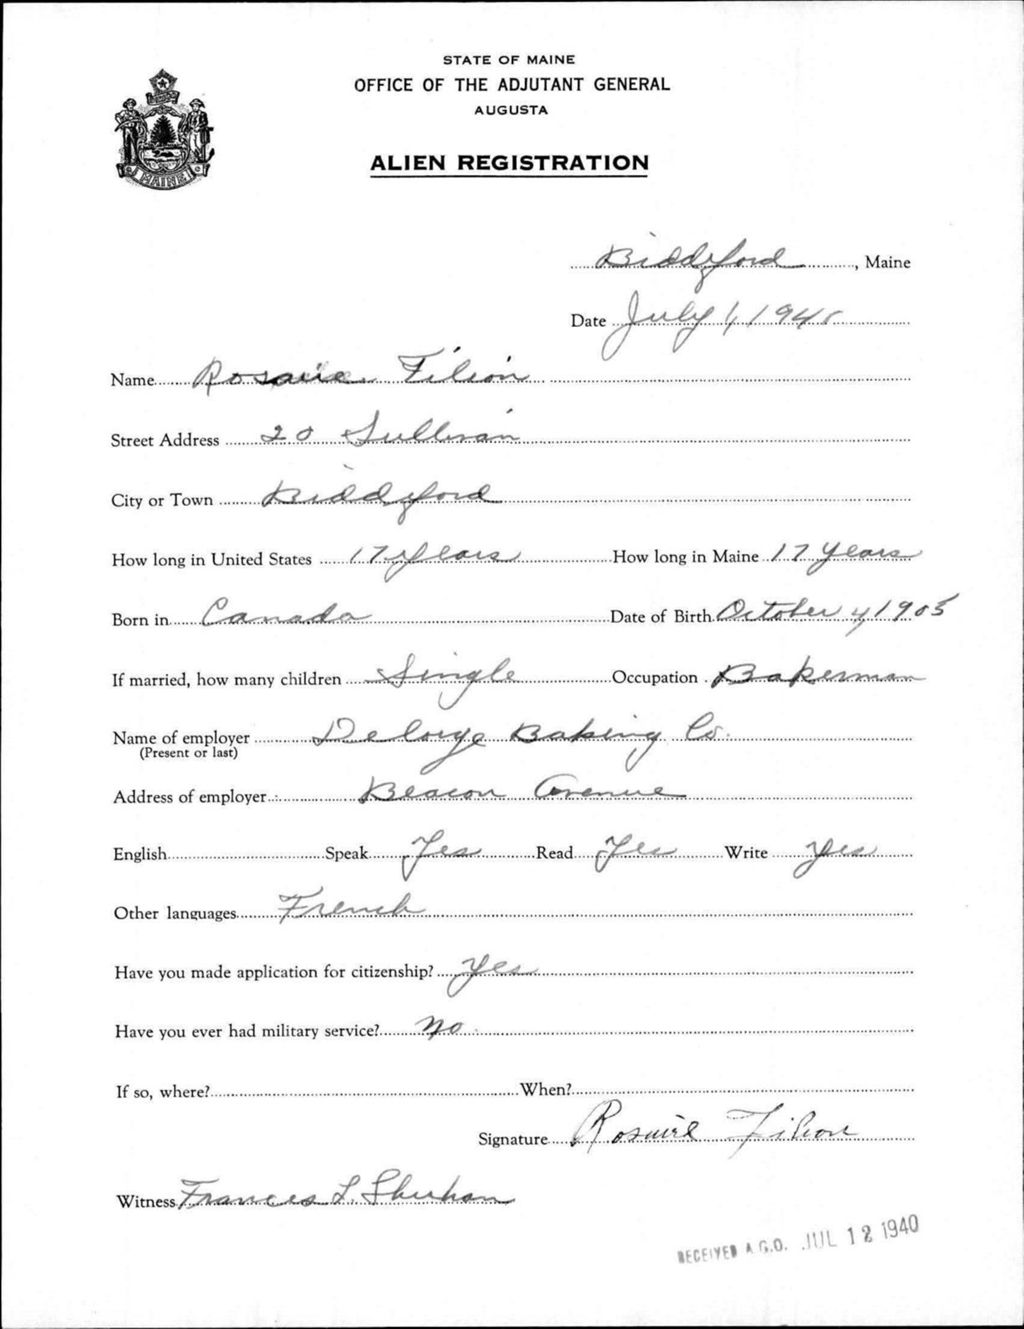 STATE OF MAINE
OFFICE OF THE ADJUTANT GENERAL
AUGUSTA
ALIEN REGISTRATION
MAINE
Biddeford, Maine
Date July 1, 1940
Name Rosaire Filion
Street Address 20 Sullivan
City or Town Biddeford
How long in United States 17 years How long in Maine 17 years
Born in Canada Date of Birth October 4, 1905
If married, how many children Single Occupation Bakerman
Name of employer DeLorge Baking Co.
(Present or last)
Address of employer Beacon Avenue
English Speak Yes Read Yes Write Yes
Other languages French
Have you made application for citizenship? Yes
Have you ever had military service? No
If so, where? When?
Signature Rosaire Filion
Witness Frances L. Sheehan
RECEIVED A.G.O. JUL 12 1940